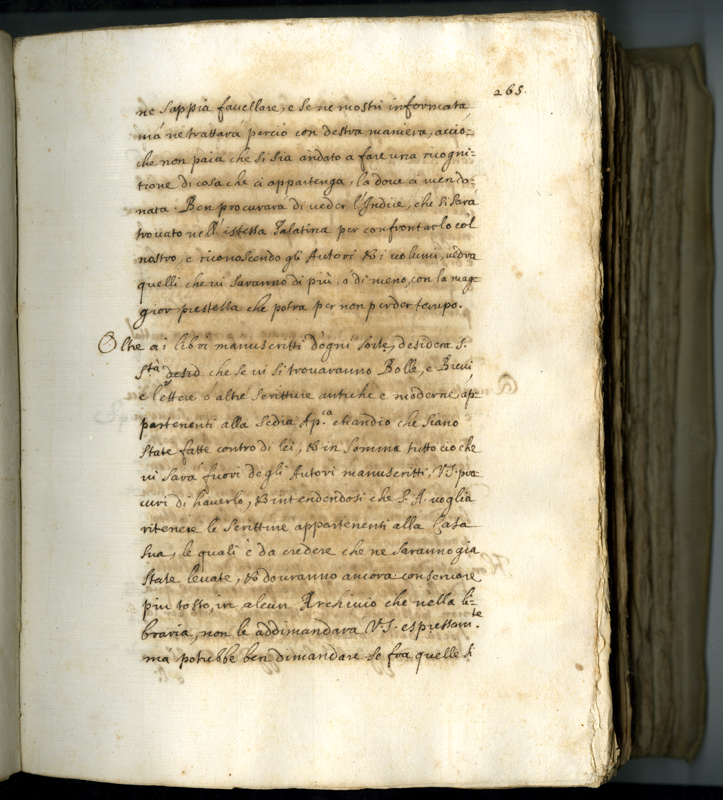 265.
ne sappia favellare, e se ne mostri informata
mà ne trattarà perciò con destra maniera, acciò-
che non paia che si sia andato a fare una ricogni-
tione di cosa che ci appartenga, la dove ci vien do-
nata. Ben procurarà di veder l'Indice, che si sarà
trovato nell'istessa Palatina per confrontarlo col
nostro, e riconoscendo gli Autori & i volumi, vedrà
quelli che vi saranno di più, o di meno, con la mag-
gior prestezza che potrà per non perder tempo.
Oltre a i libri manuscritti d'ogni sorte, desidera S.
Stà desid che se vi si trovaranno Bolle, e Brevi
e lettere o altre scritture antiche e moderne, ap-
partenenti alla Sedia Ap.ca etiandio che siano
state fatte contro di lei, & in somma tutto ciò che
vi sarà fuori degli Autori manuscritti, V.S. pro-
curi di haverlo, & intendendosi che S. A. voglia
ritenere le scritture appartenenti alla Casa
sua, le quali è da credere che ne saranno già
state levate, & dovranno ancora conservare
più tosto, in alcun Archivio che nella li-
braria, non le addimandarà V.S. espressam.te
mà potrebbe ben dimandare se fra quelle si